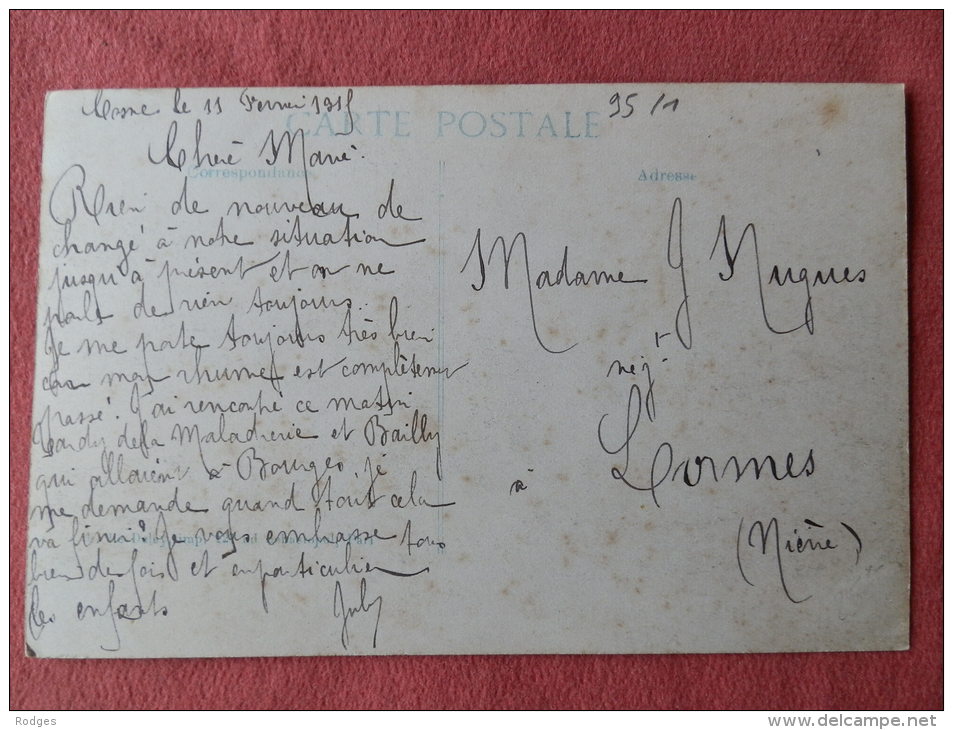 le 11 Fevrier 1915
95/1
CARTE POSTALE
Chere Marie.
Correspondance
Adresse
Rien de nouveau de
changé à notre situation
jusqu'à présent et on ne
parle de rien toujours.
Je me porte toujours très bien
car mon rhume est complètement
passé. J'ai rencontré ce matin
Tardy de la Maladrerie et Bailly
qui allaient à Bourges, je
me demande quand tout cela
va finir? Je vous embrasse tous
bien des fois et en particulier
les enfants
July
Madame J Hugues
négt
à Lormes
(Nièvre)
Rodges
www.delcampe.net